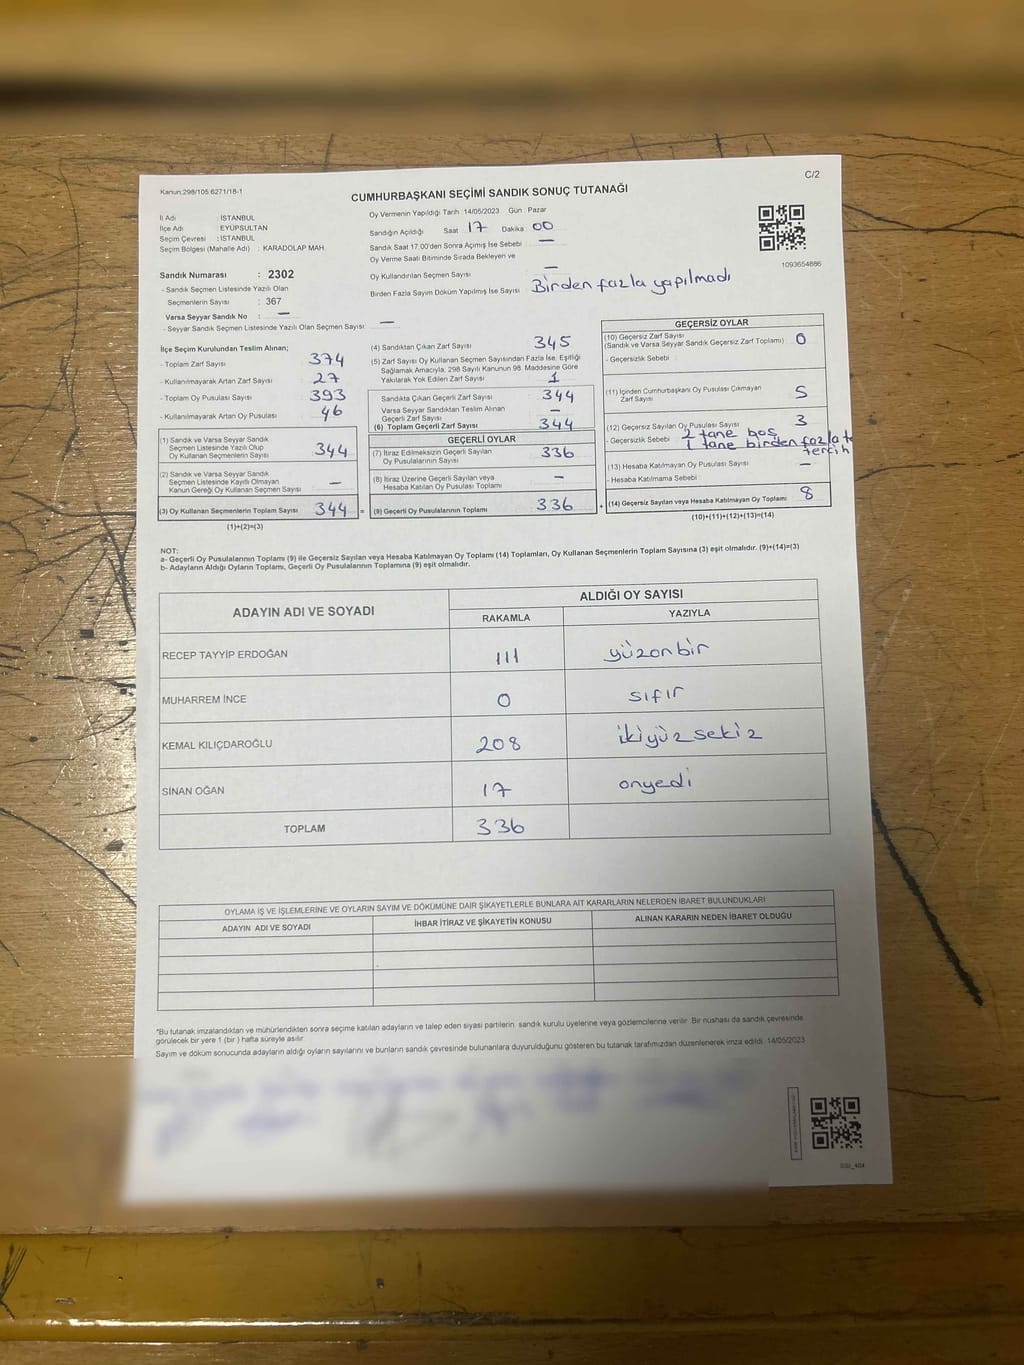 Kanun;298/105,6271/18-1
C/2
CUMHURBAŞKANI SEÇİMİ SANDIK SONUÇ TUTANAĞI
İl Adı : İSTANBUL
İlçe Adı : EYÜPSULTAN
Seçim Çevresi : İSTANBUL
Seçim Bölgesi (Mahalle Adı) : KARADOLAP MAH.
Sandık Numarası : 2302
- Sandık Seçmen Listesinde Yazılı Olan
Seçmenlerin Sayısı : 367
Varsa Seyyar Sandık No : —
- Seyyar Sandık Seçmen Listesinde Yazılı Olan Seçmen Sayısı: —
Oy Vermenin Yapıldığı Tarih :14/05/2023 Gün : Pazar
Sandığın Açıldığı Saat 17 Dakika : 00
Sandık Saat 17:00'den Sonra Açımış İse Sebebi —
Oy Verme Saati Bitiminde Sırada Bekleyen ve
Oy Kullandırılan Seçmen Sayısı —
Birden Fazla Sayım Döküm Yapılmış İse Sayısı Birden fazla yapılmadı
1093654886
İlçe Seçim Kurulundan Teslim Alınan;
- Toplam Zarf Sayısı 374
- Kullanılmayarak Artan Zarf Sayısı 27
- Toplam Oy Pusulası Sayısı 393
- Kullanılmayarak Artan Oy Pusulası 46
(1) Sandık ve Varsa Seyyar Sandık
Seçmen Listesinde Yazılı Olup
Oy Kullanan Seçmenlerin Sayısı 344
(2) Sandık ve Varsa Seyyar Sandık
Seçmen Listesinde Kayıtlı Olmayan
Kanun Gereği Oy Kullanan Seçmen Sayısı —
(3) Oy Kullanan Seçmenlerin Toplam Sayısı 344 =
(1)+(2)=(3)
(4) Sandıktan Çıkan Zarf Sayısı 345
(5) Zarf Sayısı Oy Kullanan Seçmen Sayısından Fazla İse, Eşitliği
Sağlamak Amacıyla, 298 Sayılı Kanunun 98. Maddesine Göre
Yakılarak Yok Edilen Zarf Sayısı 1
Sandıkta Çıkan Geçerli Zarf Sayısı 344
Varsa Seyyar Sandıktan Teslim Alınan
Geçerli Zarf Sayısı —
(6) Toplam Geçerli Zarf Sayısı 344
GEÇERLİ OYLAR
(7) İtiraz Edilmeksizin Geçerli Sayılan
Oy Pusulalarının Sayısı 336
(8) İtiraz Üzerine Geçerli Sayılan veya
Hesaba Katılan Oy Pusulası Toplamı —
(9) Geçerli Oy Pusulalarının Toplamı 336 +
GEÇERSİZ OYLAR
(10) Geçersiz Zarf Sayısı
(Sandık ve Varsa Seyyar Sandık Geçersiz Zarf Toplamı) 0
- Geçersizlik Sebebi
(11) İçinden Cumhurbaşkanı Oy Pusulası Çıkmayan
Zarf Sayısı 5
(12) Geçersiz Sayılan Oy Pusulası Sayısı 3
- Geçersizlik Sebebi 2 tane boş
1 tane birden fazla
tercih
(13) Hesaba Katılmayan Oy Pusulası Sayısı —
- Hesaba Katılmama Sebebi
(14) Geçersiz Sayılan veya Hesaba Katılmayan Oy Toplamı 8
(10)+(11)+(12)+(13)=(14)
NOT:
a- Geçerli Oy Pusulalarının Toplamı (9) ile Geçersiz Sayılan veya Hesaba Katılmayan Oy Toplamı (14) Toplamları, Oy Kullanan Seçmenlerin Toplam Sayısına (3) eşit olmalıdır. (9)+(14)=(3)
b- Adayların Aldığı Oyların Toplamı, Geçerli Oy Pusulalarının Toplamına (9) eşit olmalıdır.
ADAYIN ADI VE SOYADI
ALDIĞI OY SAYISI
RAKAMLA YAZIYLA
RECEP TAYYİP ERDOĞAN 111 yüzonbir
MUHARREM İNCE 0 sıfır
KEMAL KILIÇDAROĞLU 208 ikiyüzsekiz
SİNAN OĞAN 17 onyedi
TOPLAM 336
OYLAMA İŞ VE İŞLEMLERİNE VE OYLARIN SAYIM VE DÖKÜMÜNE DAİR ŞİKAYETLERLE BUNLARA AİT KARARLARIN NELERDEN İBARET BULUNDUKLARI
ADAYIN ADI VE SOYADI İHBAR İTİRAZ VE ŞİKAYETİN KONUSU ALINAN KARARIN NEDEN İBARET OLDUĞU
*Bu tutanak imzalandıktan ve mühürlendikten sonra seçime katılan adayların ve talep eden siyasi partilerin sandık kurulu üyelerine veya gözlemcilerine verilir. Bir nüshası da sandık çevresinde
görülecek bir yere 1 (bir ) hafta süreyle asılır.
Sayım ve döküm sonucunda adayların aldığı oyların sayılarını ve bunların sandık çevresinde bulunanlara duyurulduğunu gösteren bu tutanak tarafımızdan düzenlenerek imza edildi. 14/05/2023